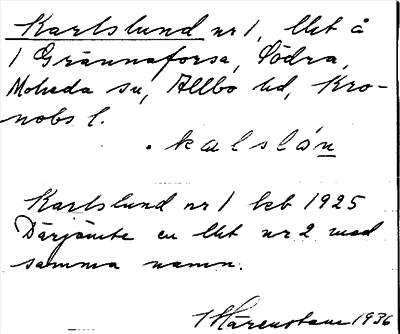 Karlslund nr 1, lht å
1 Grännaforsa, Södra,
Moheda sn, Allbo hd, Kro-
nobs l.
. kalslón
Karlslund nr 1 kb 1925
Därjämte en lht nr 2 med
samma namn.
1936